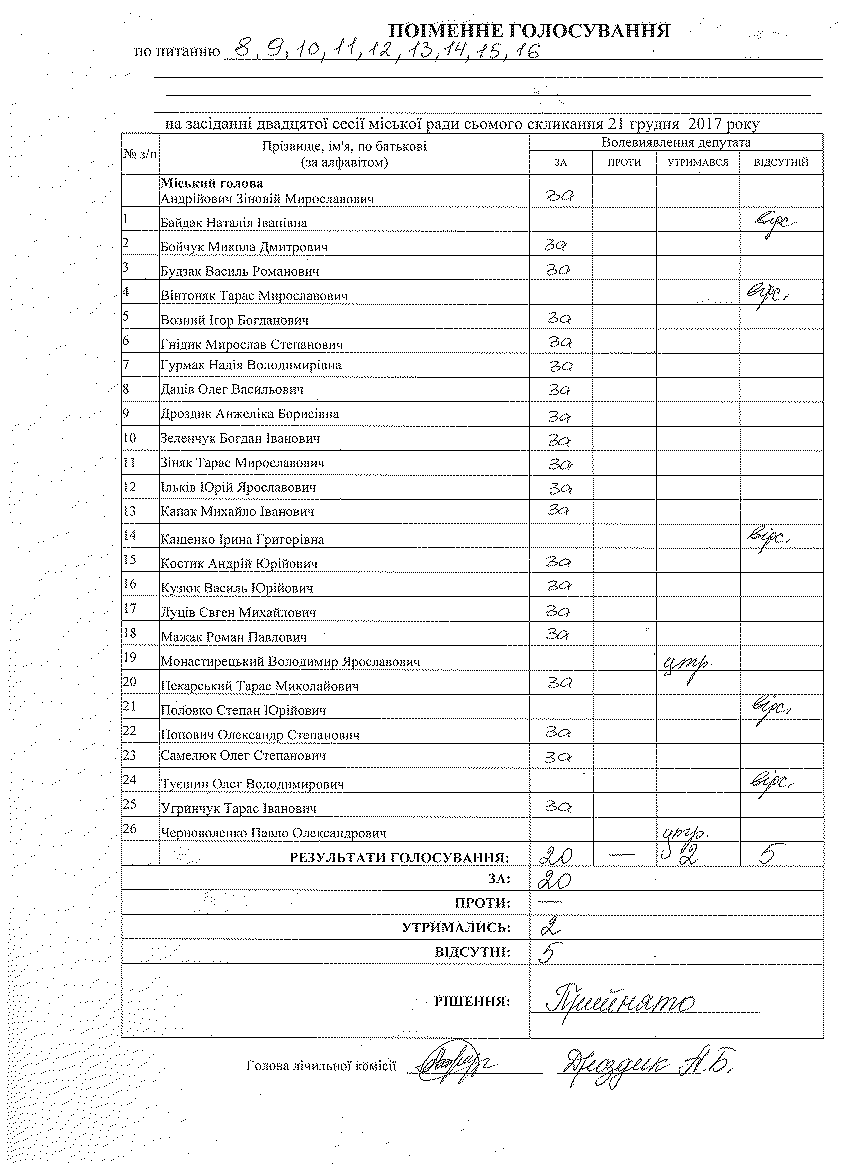 ПОІМЕННЕ ГОЛОСУВАННЯ
по питанню 8, 9, 10, 11, 12, 13, 14, 15, 16
на засіданні двадцятої сесії міської ради сьомого скликання 21 грудня 2017 року
№ з/п Прізвище, ім'я, по батькові (за алфавітом) Волевиявлення депутата
ЗА ПРОТИ УТРИМАВСЯ ВІДСУТНІЙ
Міський голова
Андрійович Зіновій Мирославович за
1 Байдак Наталія Іванівна відс.
2 Бойчук Микола Дмитрович за
3 Будзак Василь Романович за
4 Вінтоняк Тарас Мирославович відс.
5 Возний Ігор Богданович за
6 Гнідик Мирослав Степанович за
7 Гурмак Надія Володимирівна за
8 Даців Олег Васильович за
9 Дроздик Анжеліка Борисівна за
10 Зеленчук Богдан Іванович за
11 Зіняк Тарас Мирославович за
12 Ільків Юрій Ярославович за
13 Капак Михайло Іванович за
14 Кащенко Ірина Григорівна відс.
15 Костик Андрій Юрійович за
16 Кузюк Василь Юрійович за
17 Луців Євген Михайлович за
18 Мажак Роман Павлович за
19 Монастирецький Володимир Ярославович утр.
20 Пекарський Тарас Миколайович за
21 Половко Степан Юрійович відс.
22 Попович Олександр Степанович за
23 Самелюк Олег Степанович за
24 Туєшин Олег Володимирович відс.
25 Угринчук Тарас Іванович за
26 Черноволенко Павло Олександрович утр.
РЕЗУЛЬТАТИ ГОЛОСУВАННЯ: 20 — 2 5
ЗА: 20
ПРОТИ: —
УТРИМАЛИСЬ: 2
ВІДСУТНІ: 5
РІШЕННЯ: Прийнято
Голова лічильної комісії Дроздик А.Б.